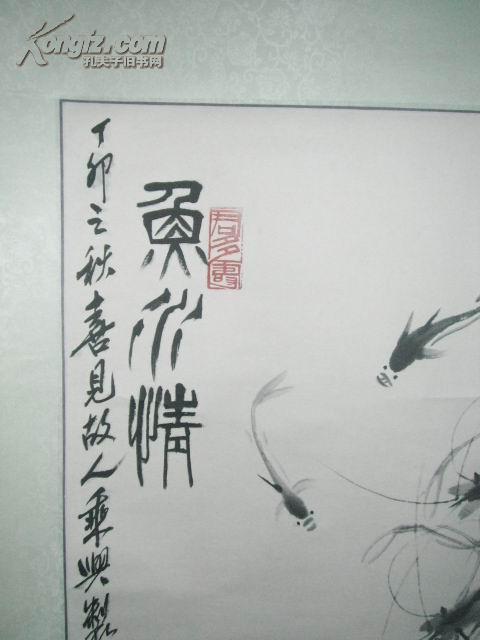 Kongfz.com
孔夫子旧书网
魚水情
君多壽
丁卯之秋喜見故人乘興製